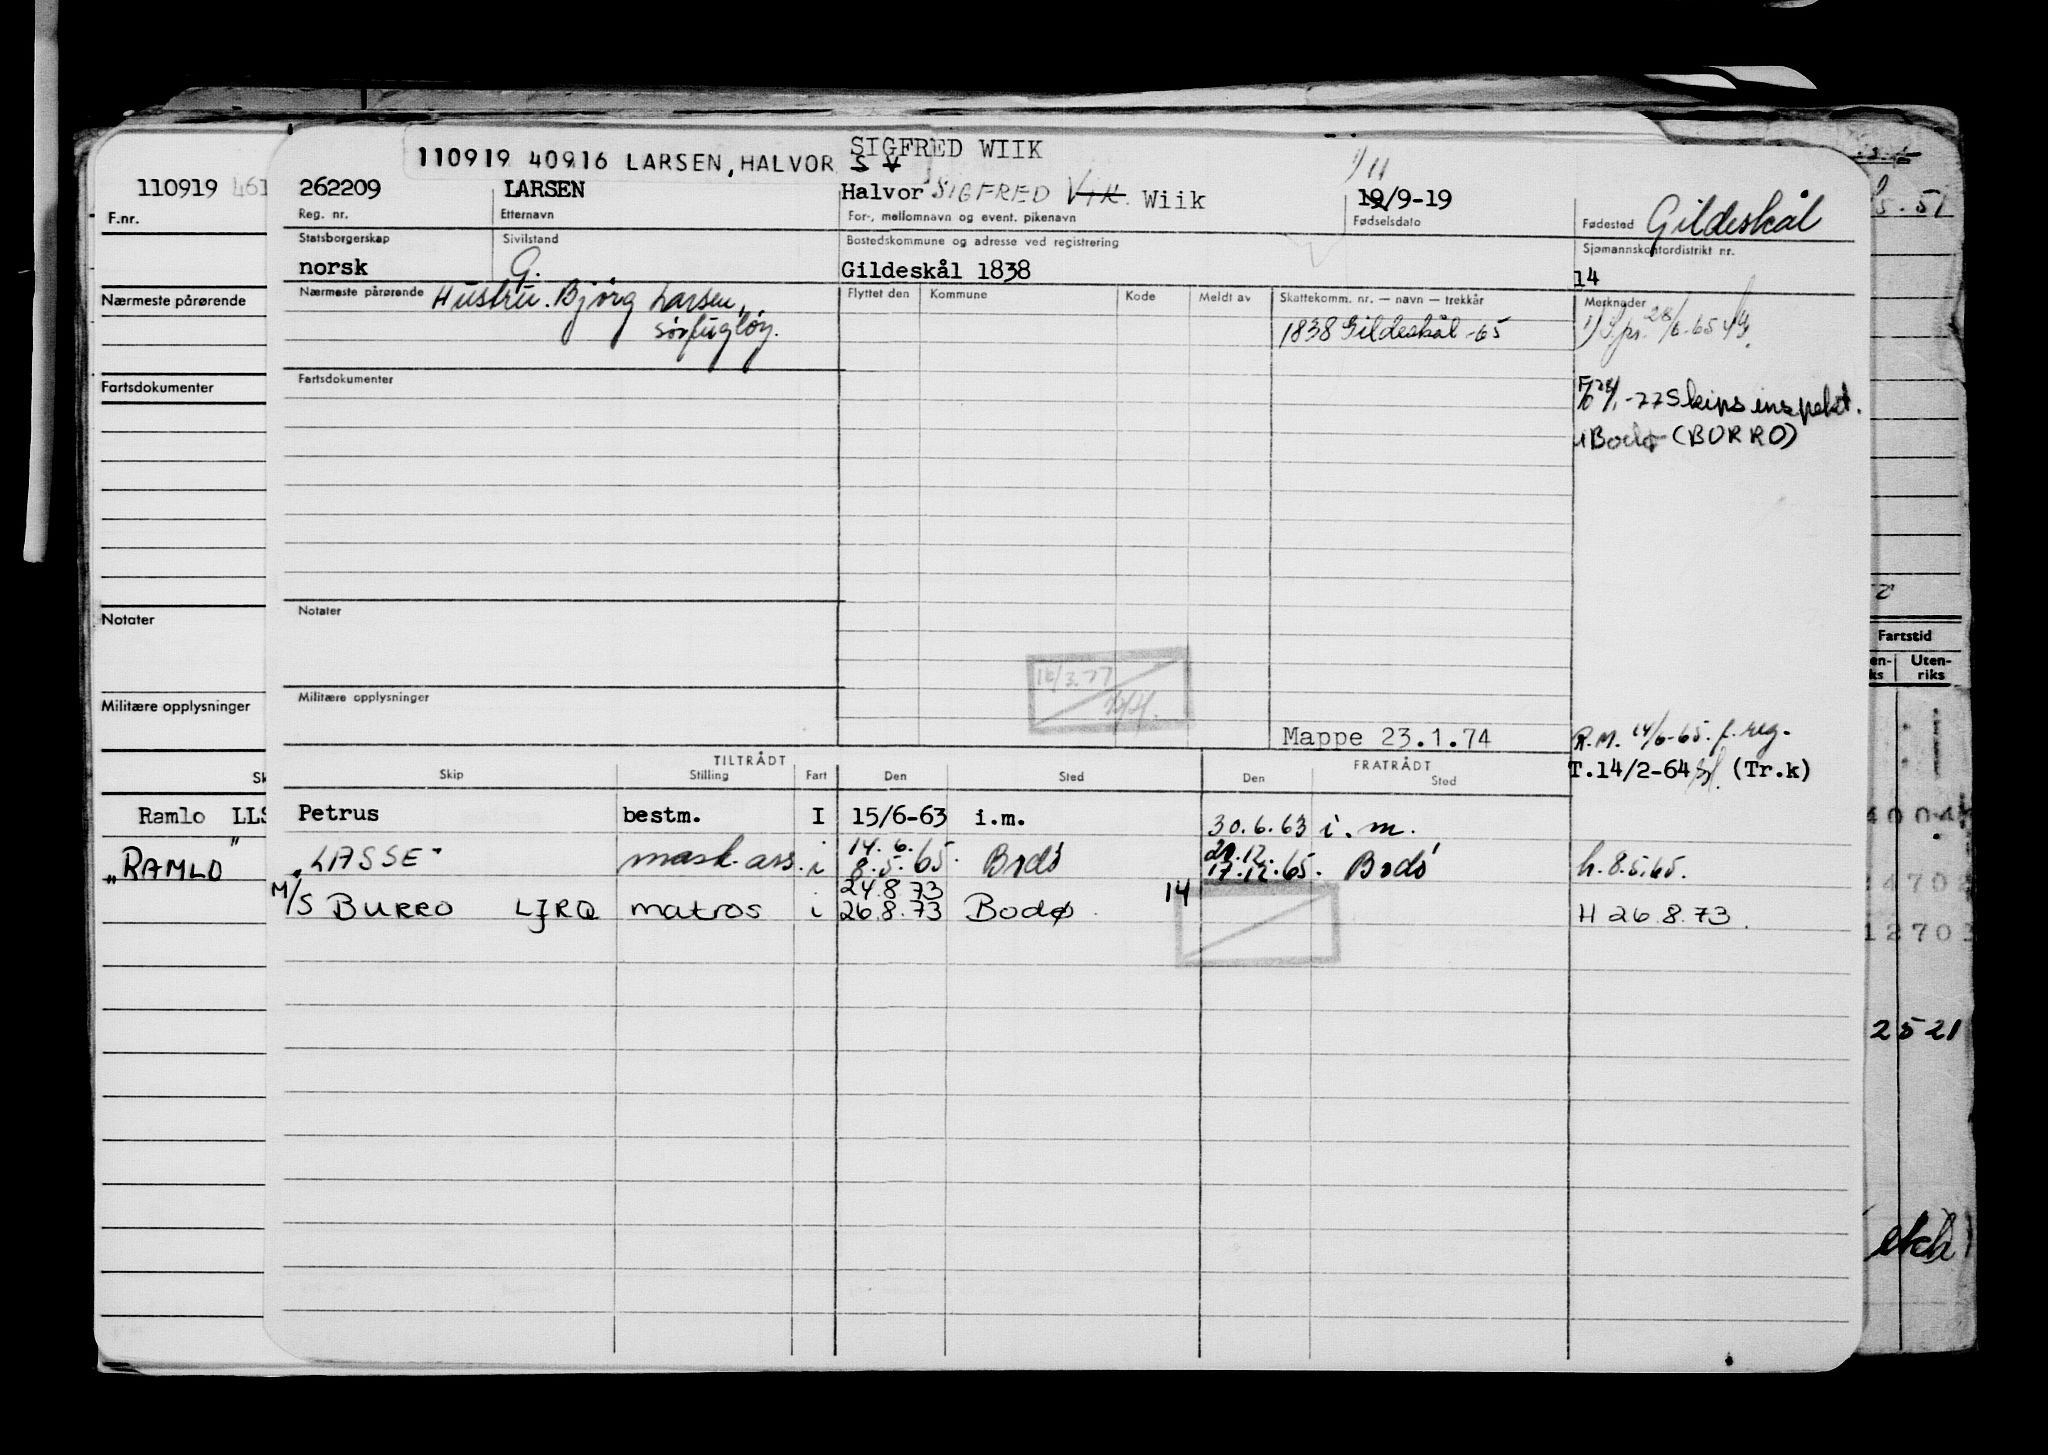 SIGFRED WIIK
110919 40916 LARSEN, HALVOR S V
110919 461
262209 LARSEN Halvor SIGFRED Vik Wiik 19/9-19 Gildeskål
1) 11
F.nr. Reg. nr. Etternavn For-, mellomnavn og event. pikenavn Fødselsdato Fødested
Statsborgerskap Sivilstand Bostedskommune og adresse ved registrering Sjømannskontordistrikt nr.
norsk G. Gildeskål 1838 14
Nærmeste pårørende
Nærmeste pårørende Hustru. Bjørg Larsen, Flyttet den Kommune Kode Meldt av Skattekomm. nr. — navn — trekkår Merknader
Sørfugløy. 1838 Gildeskål -65 28/6-65
Fartsdokumenter
Fartsdokumenter
-77 Skipsinspekt.
Bodø (BURRO)
Notater
Notater
Fartstid
Uten-
riks
Militære opplysninger
Militære opplysninger
16/3.77
Mappe 23.1.74
R.M. 14/6-65. f. reg.
T.14/2-64 (Tr.k)
TILTRÅDT FRATRÅDT
Skip Stilling Fart Den Sted Den Sted
Ramlo LLS
Petrus bestm. I 15/6-63 i.m. 30.6.63 i.m.
"RAMLO"
14.6.
"LASSE" mask.ass. i 8.5.65. Bodø 17.12.65. Bodø h.8.5.65.
24.8.73
M/S BURRO LJRQ matros i 26.8.73 Bodø 14 H 26.8.73.
12703
2521